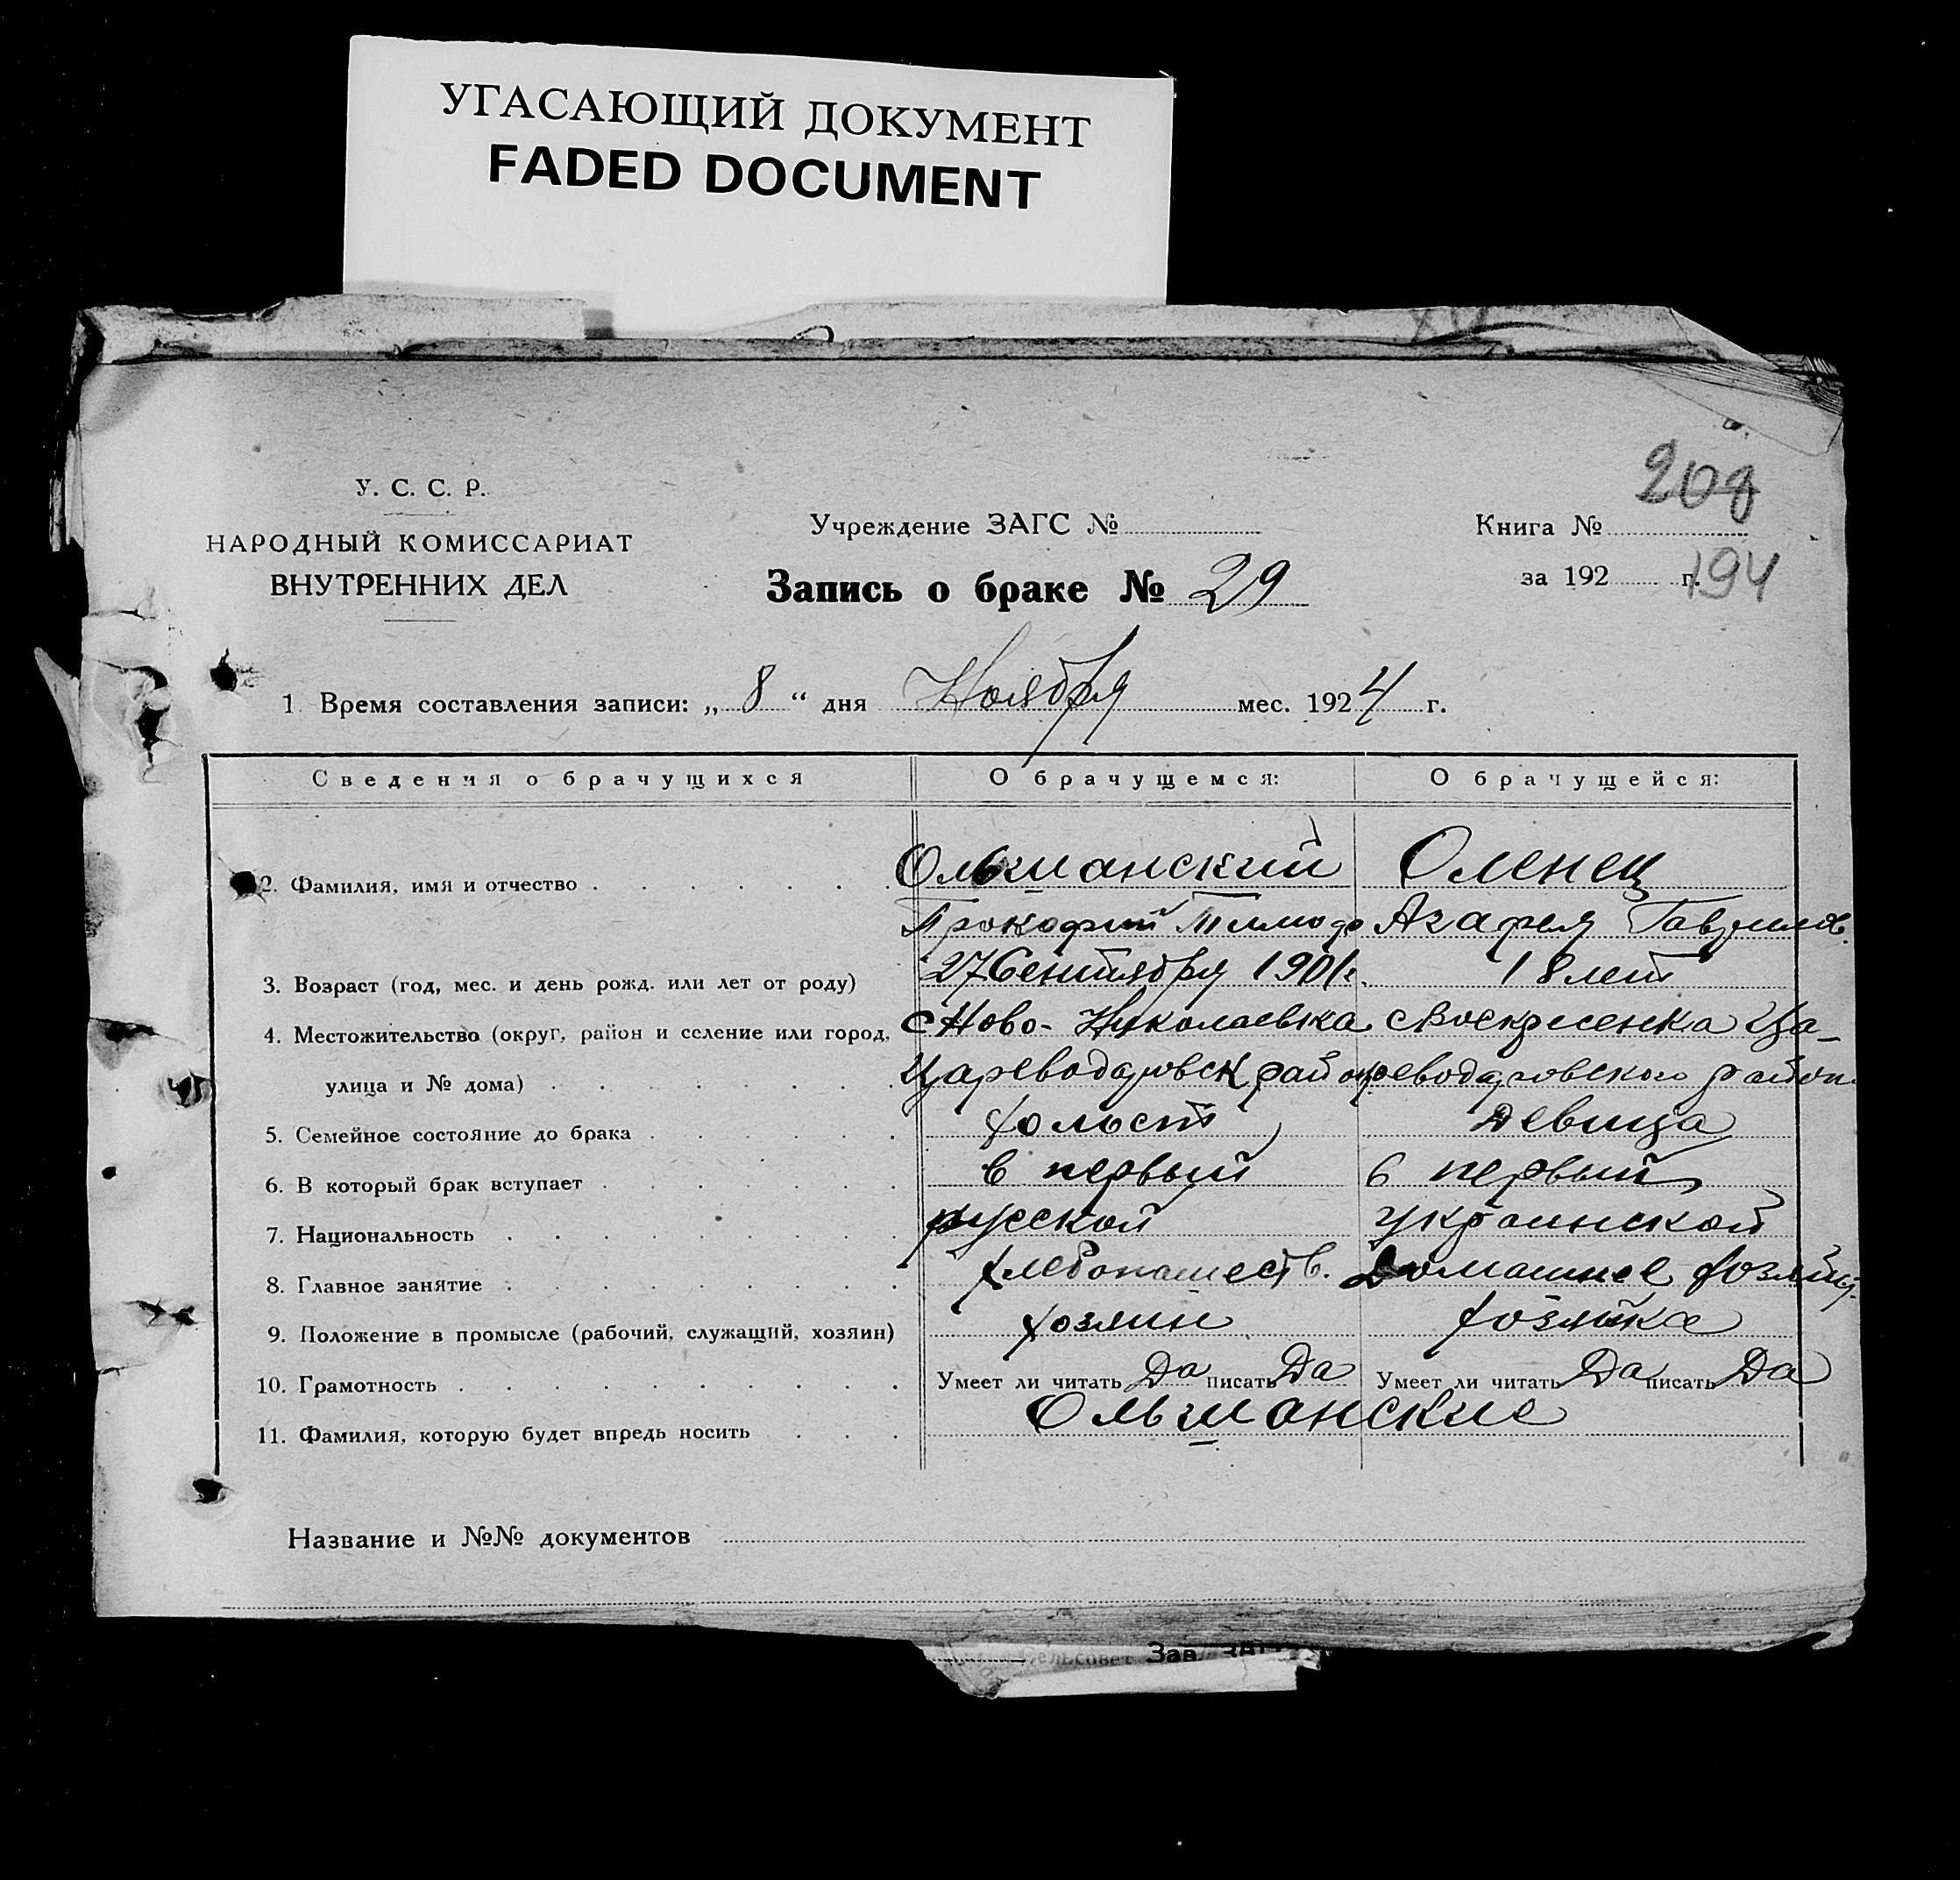 УГАСАЮЩИЙ ДОКУМЕНТ
FADED DOCUMENT
У. С. С. Р.
НАРОДНЫЙ КОМИССАРИАТ
ВНУТРЕННИХ ДЕЛ
Учреждение ЗАГС №
Запись о браке № 29
208
Книга №
за 192 г.
194
1. Время составления записи: „ 8 “ дня Ноября мес. 1924 г.
Сведения о брачущихся О брачущемся: О брачущейся:
2. Фамилия, имя и отчество Ольшанский Оленец
Прокофий Тимоф Агафея Гаврилов.
3. Возраст (год, мес. и день рожд. или лет от роду) 27 Сентября 1901 г. 18 лет
4. Местожительство (округ, район и селение или город, с Ново-Николаевка с Воскресенка Ца-
улица и № дома) Цареводаровск район реводаровского район
5. Семейное состояние до брака холост девица
6. В который брак вступает в первый в первый
7. Национальность русской украинской
8. Главное занятие хлебопашеств. Домашнее хозяйст.
9. Положение в промысле (рабочий, служащий, хозяин) хозяин хозяйка
10. Грамотность Умеет ли читать Да писать Да Умеет ли читать Да писать Да
11. Фамилия, которую будет впредь носить Ольшанские
Название и №№ документов
сельсовет Зав.